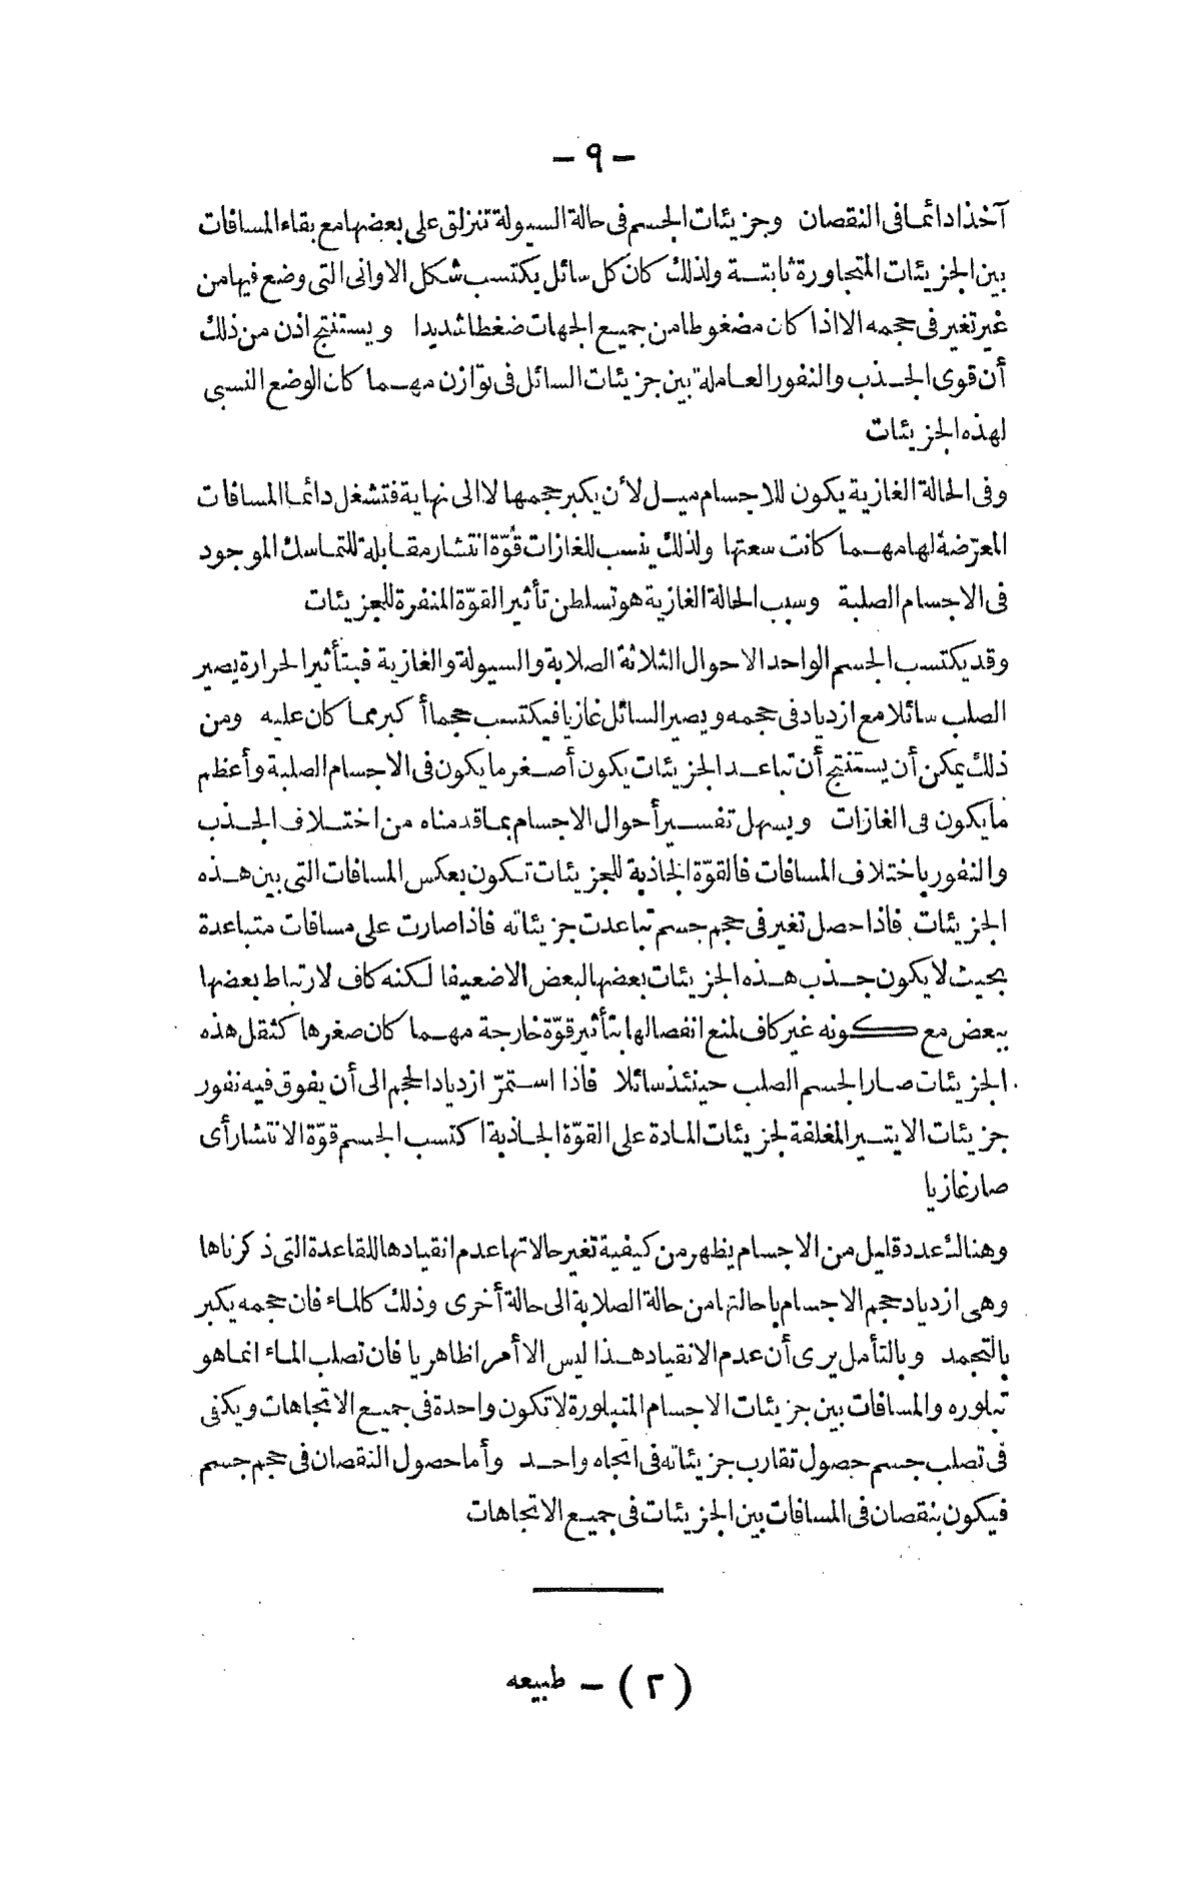 – ٩ –
آخذا دائما فى النقصان وجزيئات الجسم فى حالة السيولة تنزلق على بعضها مع بقاء المسافات
بين الجزيئات المتجاورة ثابتة ولذلك كان كل سائل يكتسب شكل الاوانى التى وضع فيها من
غير تغير فى حجمه الا اذا كان مضغوطا من جميع الجهات ضغطا شديدا ويستنتج اذن من ذلك
أن قوى الجذب والنفور العاملة بين جزيئات السائل فى توازن مهما كان الوضع النسبى
لهذه الجزيئات
وفى الحالة الغازية يكون للاجسام ميل لأن يكبر حجمها لا الى نهاية فتشغل دائما المسافات
المعرّضة لها مهما كانت سعتها ولذلك ينسب للغازات قوّة انتشار مقابلة للتماسك الموجود
فى الاجسام الصلبة وسبب الحالة الغازية هو تسلطن تأثير القوّة المنفرة للجزيئات
وقد يكتسب الجسم الواحد الاحوال الثلاثة الصلابة والسيولة والغازية فبتأثير الحرارة يصير
الصلب سائلا مع ازدياد فى حجمه ويصير السائل غازيا فيكتسب حجما أكبر مما كان عليه ومن
ذلك يمكن أن يستنتج أن تباعد الجزيئات يكون أصغر ما يكون فى الاجسام الصلبة وأعظم
ما يكون فى الغازات ويسهل تفسير أحوال الاجسام بما قدمناه من اختلاف الجذب
والنفور باختلاف المسافات فالقوّة الجاذبة للجزيئات تكون بعكس المسافات التى بين هذه
الجزيئات فاذا حصل تغير فى حجم جسم تباعدت جزيئاته فاذا صارت على مسافات متباعدة
بحيث لا يكون جذب هذه الجزيئات بعضها لبعض الا ضعيفا لكنه كاف لارتباط بعضها
ببعض مع كونه غير كاف لمنع انفصالها بتأثير قوّة خارجة مهما كان صغرها كثقل هذه
الجزيئات صار الجسم الصلب حينئذ سائلا فاذا استمرّ ازدياد الحجم الى أن يفوق فيه نفور
جزيئات الايتير المغلفة لجزيئات المادة على القوّة الجاذبة اكتسب الجسم قوّة الانتشار أى
صار غازيا
وهنالك عدد قليل من الاجسام يظهر من كيفية تغير حالاتها عدم انقيادها للقاعدة التى ذكرناها
وهى ازدياد حجم الاجسام باحالتها من حالة الصلابة الى حالة أخرى وذلك كالماء فان حجمه يكبر
بالتجمد وبالتأمل يرى أن عدم الانقياد هذا ليس الا أمرا ظاهريا فان تصلب الماء انما هو
تبلوره والمسافات بين جزيئات الاجسام المتبلورة لا تكون واحدة فى جميع الاتجاهات ويكفى
فى تصلب جسم حصول تقارب جزيئاته فى اتجاه واحد وأما حصول النقصان فى حجم جسم
فيكون بنقصان فى المسافات بين الجزيئات فى جميع الاتجاهات
(٢) – طبيعه